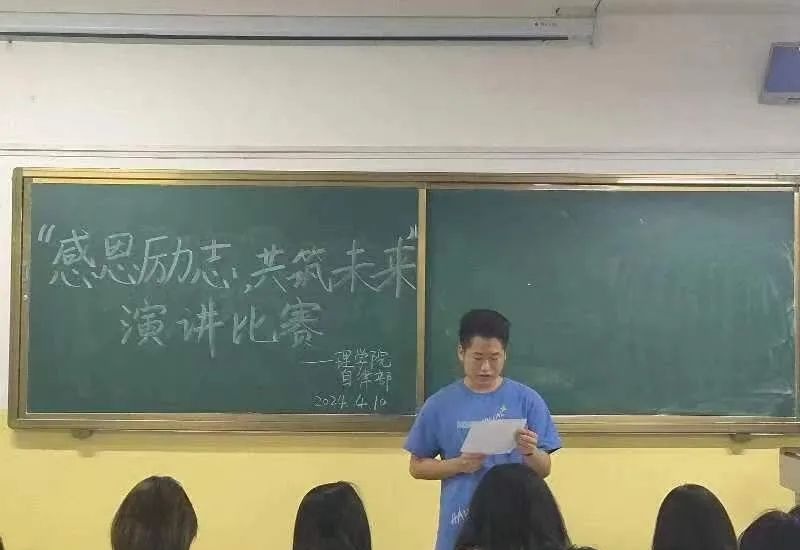 “感恩励志,共筑未来”
演讲比赛
——理学院
自律部
2024.4.10